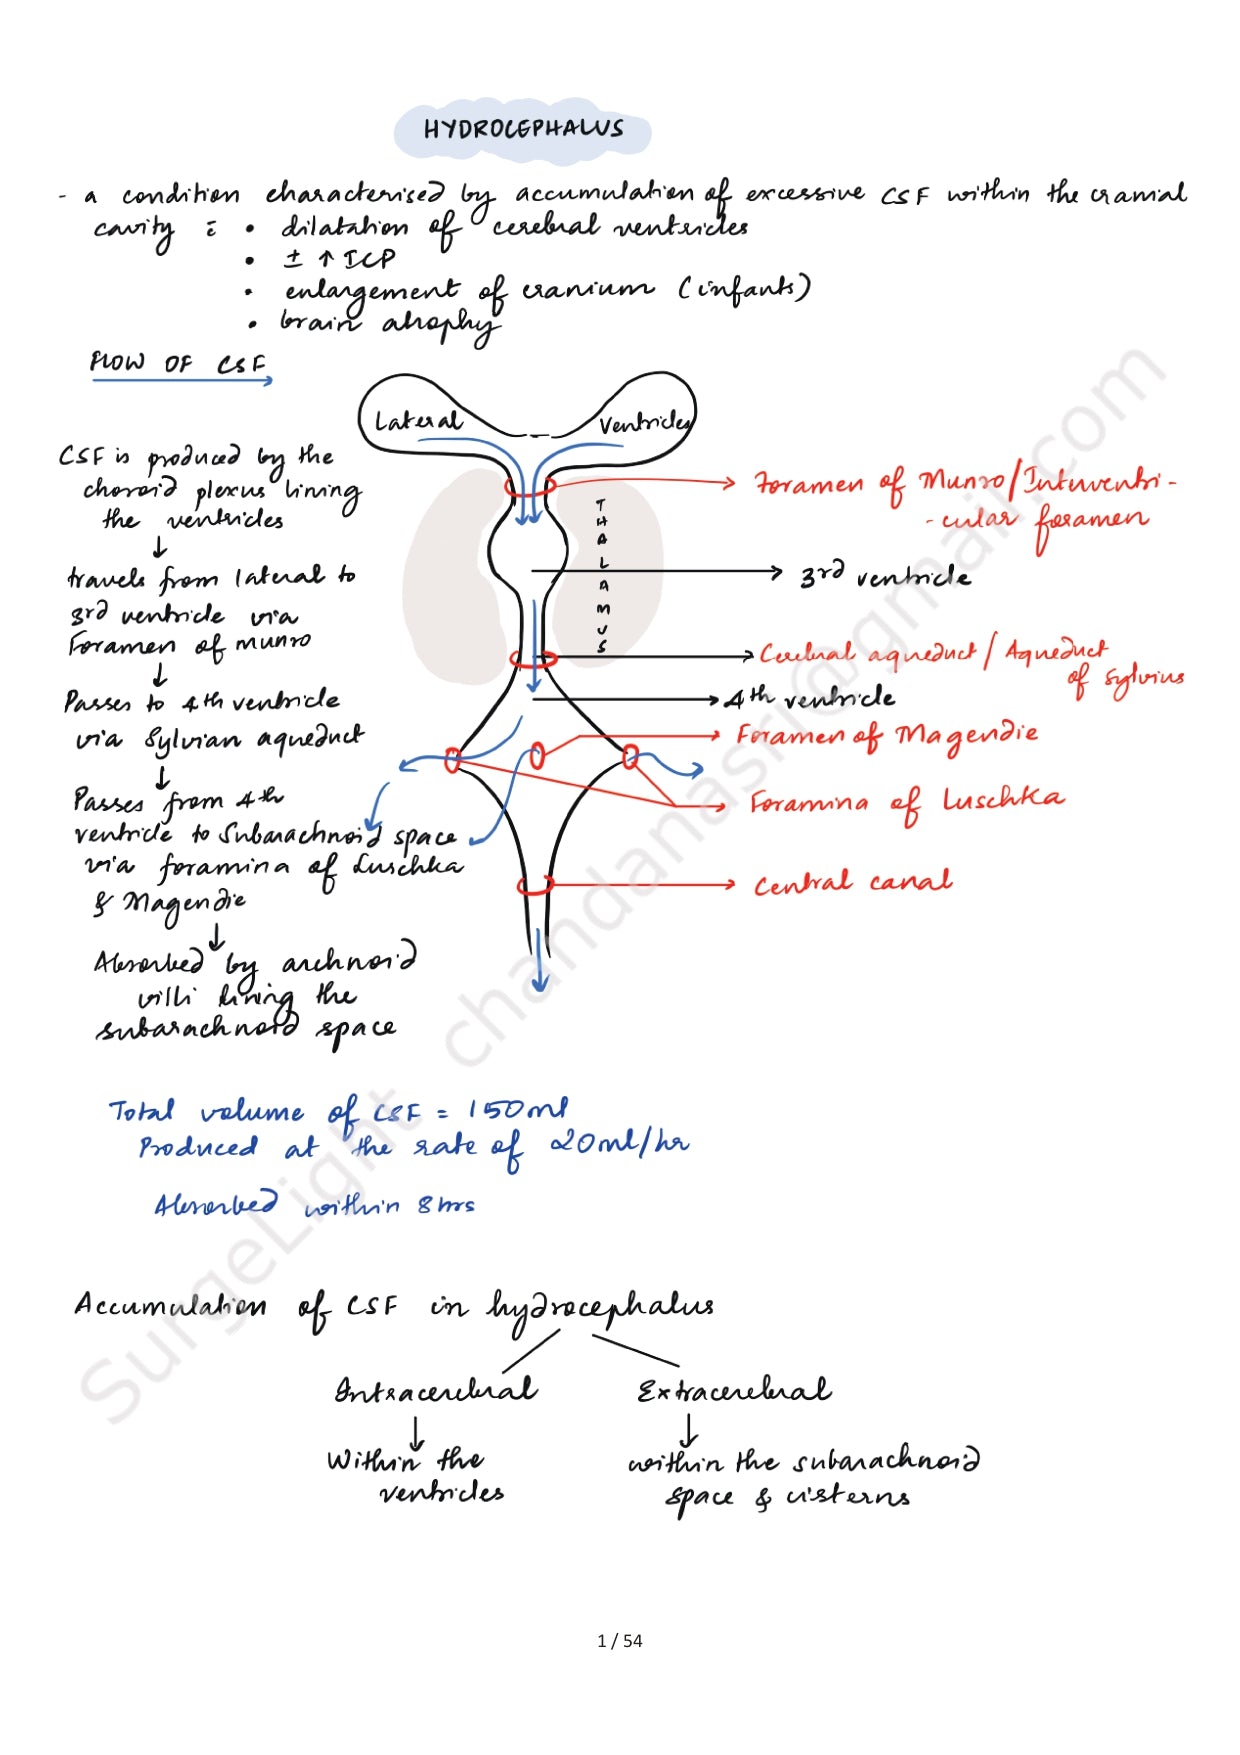 HYDROCEPHALUS
- a condition characterised by accumulation of excessive CSF within the cranial
cavity c̄ • dilatation of cerebral ventricles
• ± ↑ ICP
• enlargement of cranium (infants)
• brain atrophy
FLOW OF CSF
Lateral Ventricles
CSF is produced by the
choroid plexus lining
the ventricles
↓
travels from lateral to
3rd ventricle via
Foramen of munro
↓
Passes to 4th ventricle
via Sylvian aqueduct
↓
Passes from 4th
ventricle to Subarachnoid space
via foramina of Luschka
& Magendie
↓
Absorbed by archnoid
villi lining the
subarachnoid space
THALAMUS
Foramen of Munro/Interventri-
-cular foramen
3rd ventricle
Cerebral aqueduct / Aqueduct
of Sylvius
4th ventricle
Foramen of Magendie
Foramina of Luschka
Central canal
Total volume of CSF = 150ml
Produced at the rate of 20ml/hr
Absorbed within 8hrs
Accumulation of CSF in hydrocephalus
Intracerebral Extracerebral
↓ ↓
Within the within the subarachnoid
ventricles space & cisterns
SurgeLight chandanasri@gmail.com
1 / 54